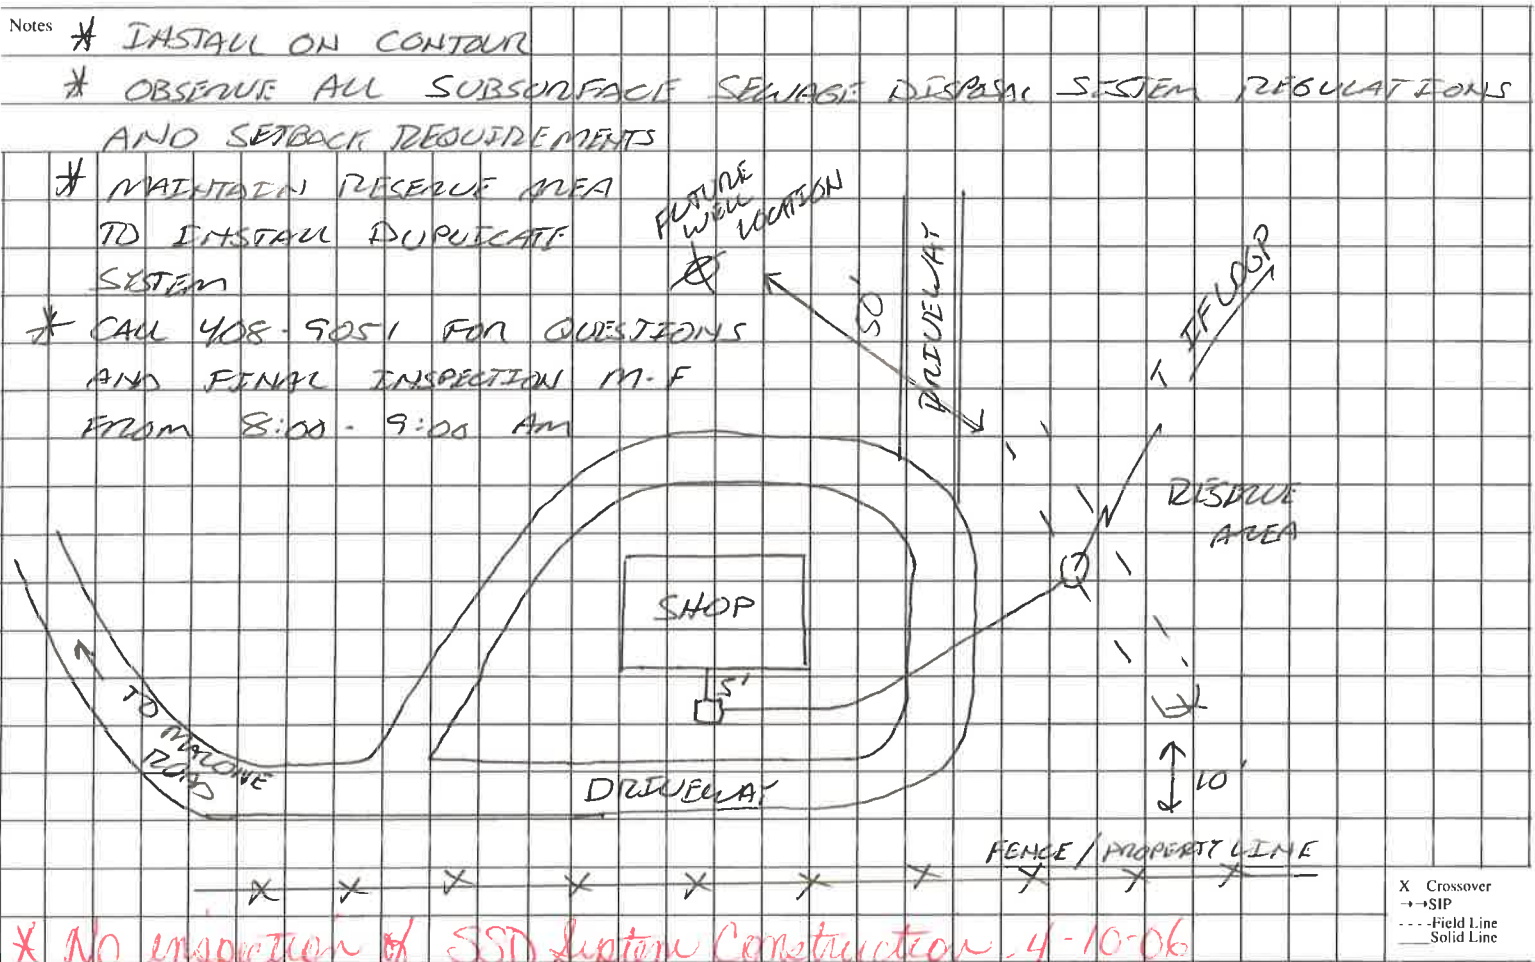 Notes * INSTALL ON CONTOUR
* OBSERVE ALL SUBSURFACE SEWAGE DISPOSAL SYSTEM REGULATIONS
AND SETBACK REQUIREMENTS
* MAINTAIN RESERVE AREA
TO INSTALL DUPLICATE
SYSTEM
* CALL 408-9051 FOR QUESTIONS
AND FINAL INSPECTION M-F
FROM 8:00 - 9:00 AM
FUTURE
WELL
LOCATION
50'
DRIVEWAY
IF LOOP
RESERVE
AREA
SHOP
5'
TO MALONE
ROAD
DRIVEWAY
10'
FENCE / PROPERTY LINE
X Crossover
SIP
- - - -Field Line
Solid Line
* No inspection of SSD System Construction 4-10-06